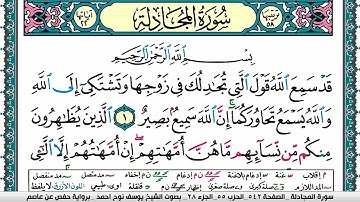 سُورَةُ المُجَادلَةِ
ترتيبها ٥٨
آياتها ٢٢
بِسْمِ ٱللَّهِ ٱلرَّحْمَٰنِ ٱلرَّحِيمِ
قَدْ سَمِعَ ٱللَّهُ قَوْلَ ٱلَّتِى تُجَٰدِلُكَ فِى زَوْجِهَا وَتَشْتَكِىٓ إِلَى ٱللَّهِ
وَٱللَّهُ يَسْمَعُ تَحَاوُرَكُمَآ إِنَّ ٱللَّهَ سَمِيعٌۢ بَصِيرٌ ١ ٱلَّذِينَ يُظَٰهِرُونَ
مِنكُم مِّن نِّسَآئِهِم مَّا هُنَّ أُمَّهَٰتِهِمْ إِنْ أُمَّهَٰتُهُمْ إِلَّا ٱلَّٰٓـِٔى
سورة المجادلة الصفحة ٥٤٢ الحزب ٥٥ الجزء ٢٨ بصوت الشيخ يوسف نوح احمد برواية حفص عن عاصم